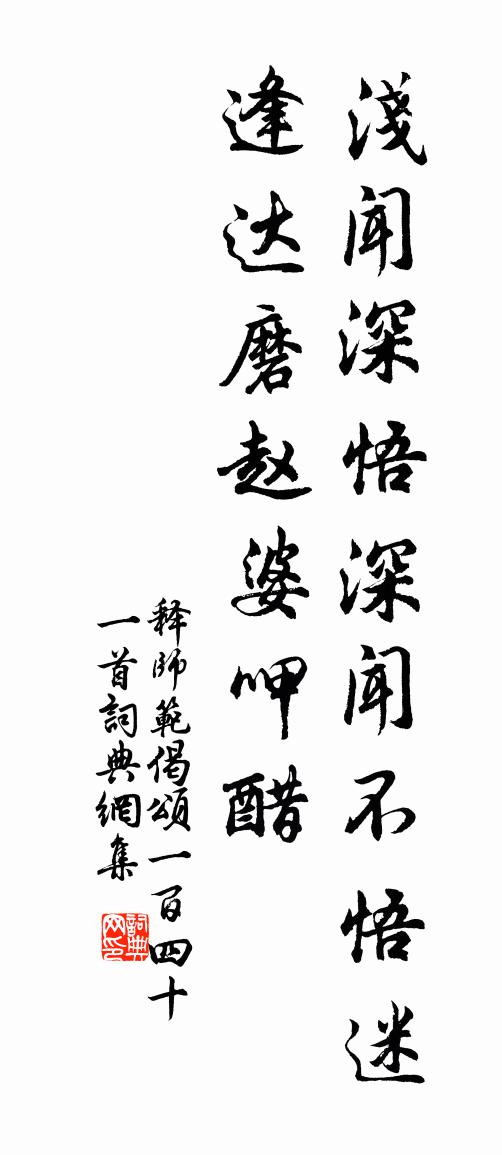 淺聞深悟深聞不悟迷
逢达磨赵婆呷醋
释師範偈頌一百四十
一首詞典網集
詞典
网印